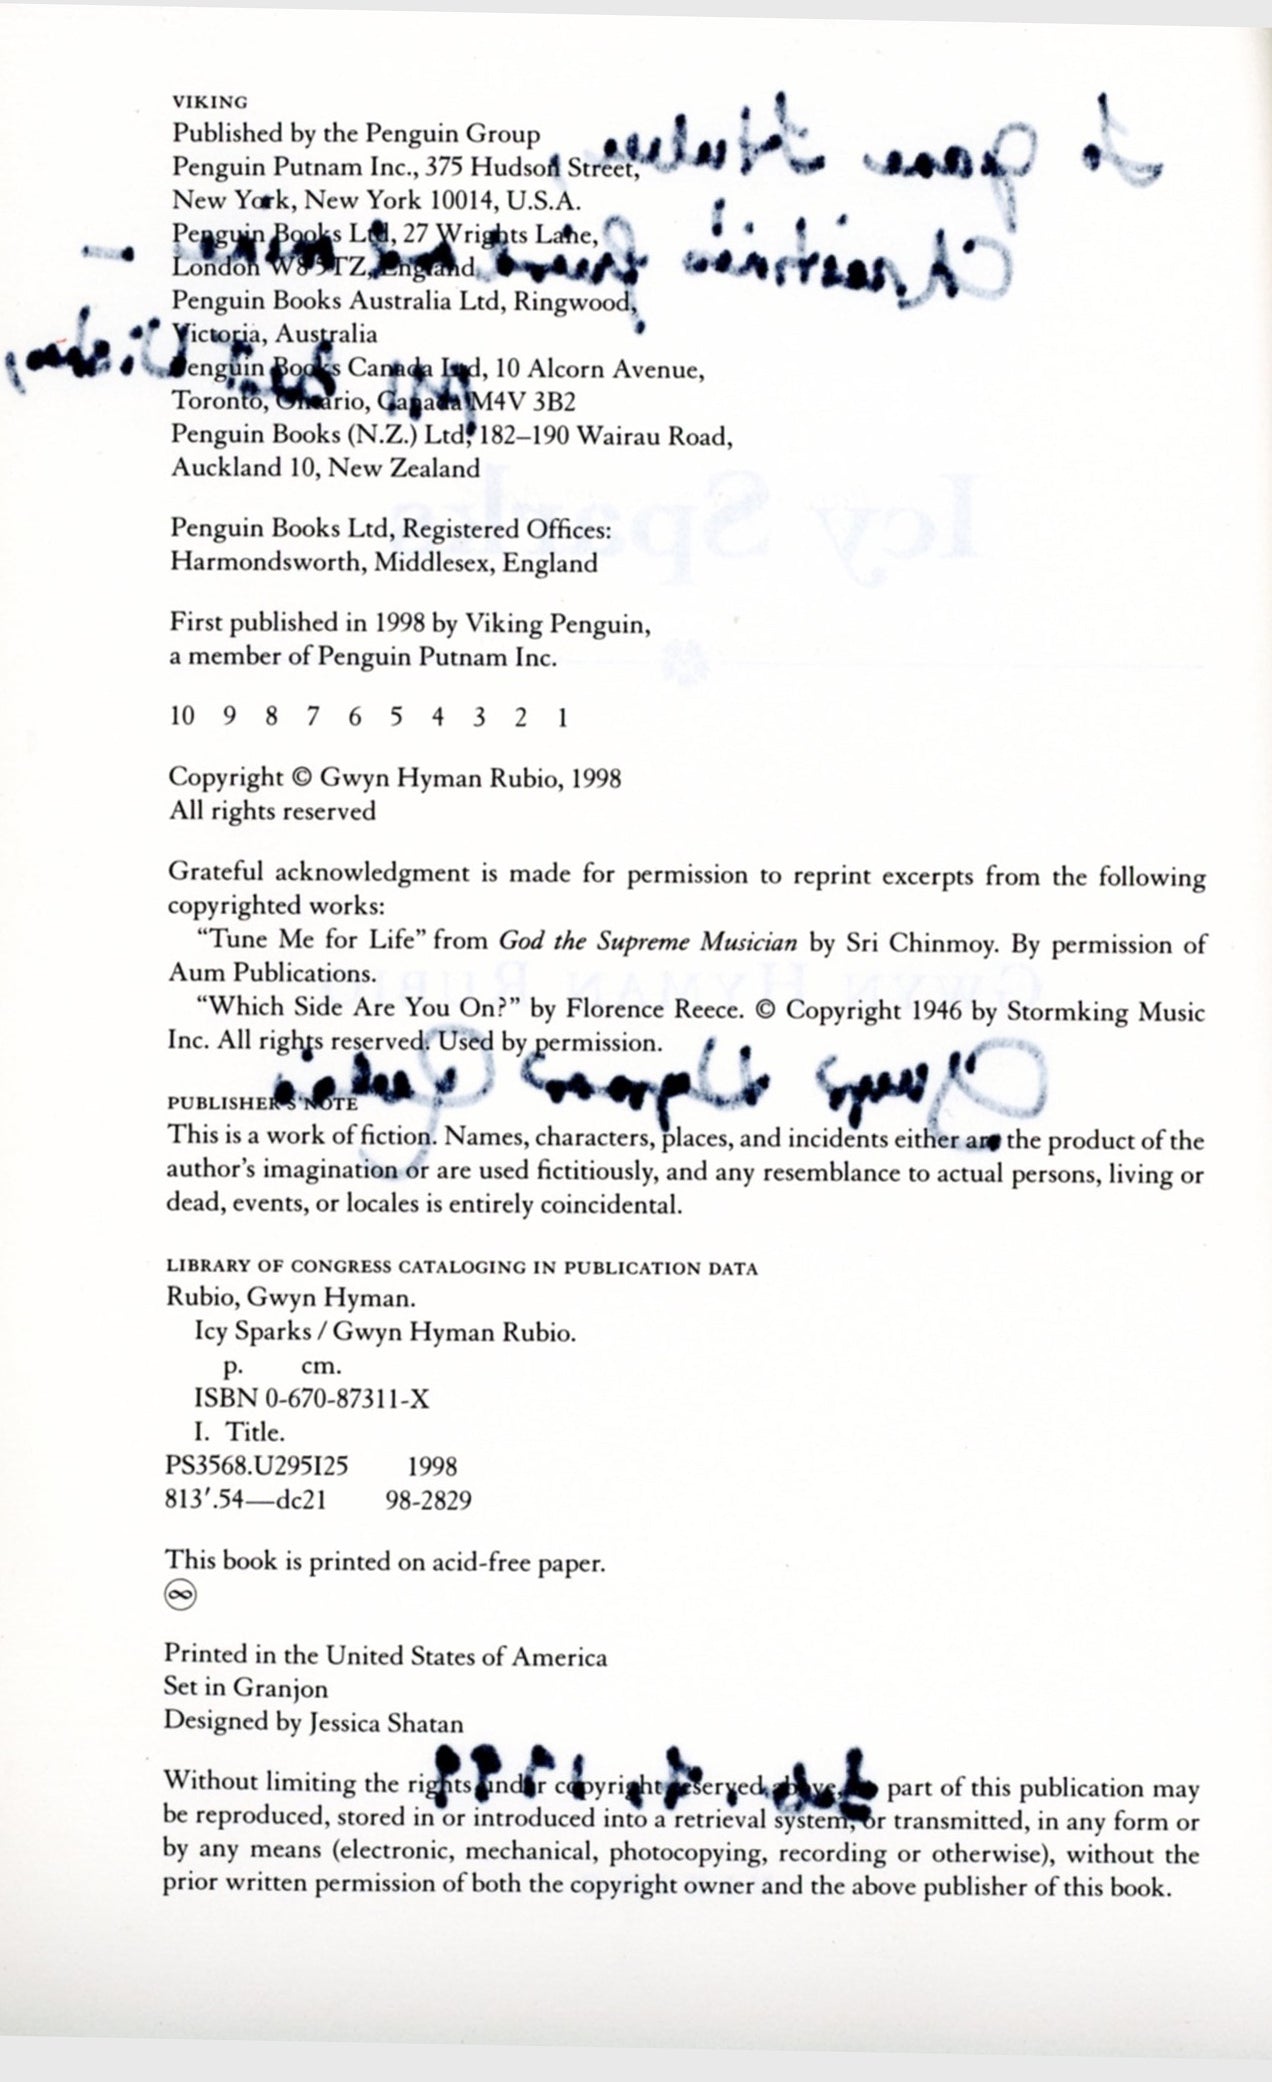 VIKING
Published by the Penguin Group
Penguin Putnam Inc., 375 Hudson Street,
New York, New York 10014, U.S.A.
Penguin Books Ltd, 27 Wrights Lane,
London W8 5TZ, England
Penguin Books Australia Ltd, Ringwood,
Victoria, Australia
Penguin Books Canada Ltd, 10 Alcorn Avenue,
Toronto, Ontario, Canada M4V 3B2
Penguin Books (N.Z.) Ltd, 182–190 Wairau Road,
Auckland 10, New Zealand
Penguin Books Ltd, Registered Offices:
Harmondsworth, Middlesex, England
Icy Sparks
First published in 1998 by Viking Penguin,
a member of Penguin Putnam Inc.
10 9 8 7 6 5 4 3 2 1
Copyright © Gwyn Hyman Rubio, 1998
All rights reserved
Grateful acknowledgment is made for permission to reprint excerpts from the following
copyrighted works:
“Tune Me for Life” from God the Supreme Musician by Sri Chinmoy. By permission of
Aum Publications.
GWYN HYMAN RUBIO
“Which Side Are You On?” by Florence Reece. © Copyright 1946 by Stormking Music
Inc. All rights reserved. Used by permission.
PUBLISHER'S NOTE
This is a work of fiction. Names, characters, places, and incidents either are the product of the
author’s imagination or are used fictitiously, and any resemblance to actual persons, living or
dead, events, or locales is entirely coincidental.
LIBRARY OF CONGRESS CATALOGING IN PUBLICATION DATA
Rubio, Gwyn Hyman.
Icy Sparks / Gwyn Hyman Rubio.
p. cm.
ISBN 0-670-87311-X
I. Title.
PS3568.U295I25 1998
813′.54—dc21 98-2829
This book is printed on acid-free paper.
∞
Printed in the United States of America
Set in Granjon
Designed by Jessica Shatan
Without limiting the rights under copyright reserved above, no part of this publication may
be reproduced, stored in or introduced into a retrieval system, or transmitted, in any form or
by any means (electronic, mechanical, photocopying, recording or otherwise), without the
prior written permission of both the copyright owner and the above publisher of this book.